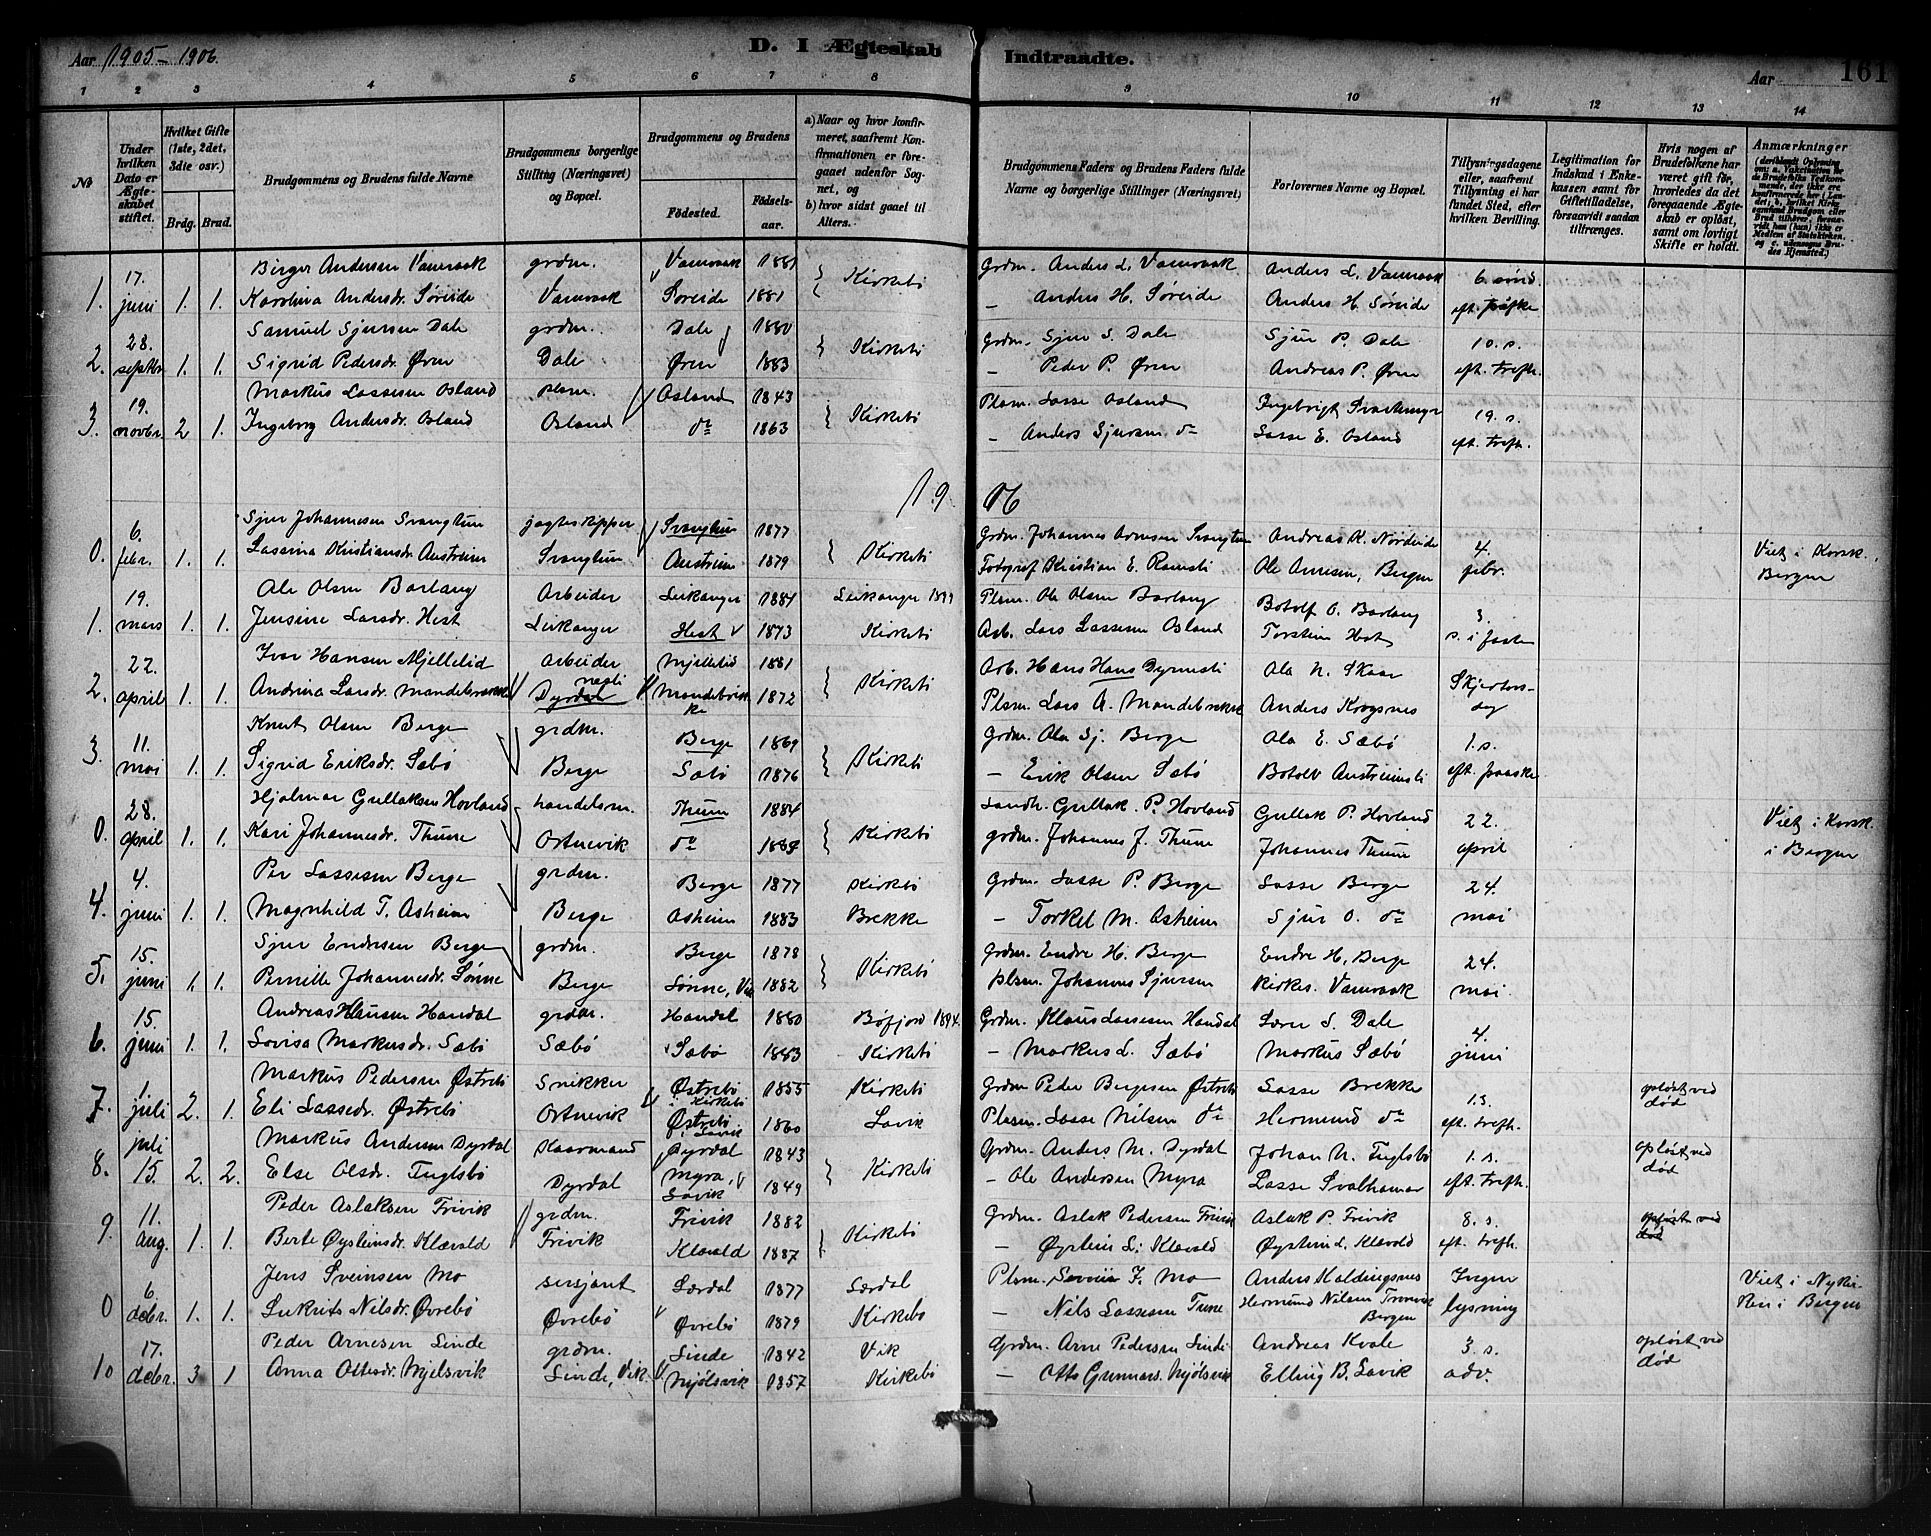 Aar 1905-1906.
D. I Ægteskab Indtraadte.
Aar 161
1 2 3 4 5 6 7 8 9 10 11 12 13 14
No
Under hvilken Dato er Ægteskabet stiftet.
Hvilket Gifte (1ste, 2det, 3die osv.)
Brdg. Brud.
Brudgommens og Brudens fulde Navne
Brudgommens borgerlige Stilling (Næringsvei) og Bopæl.
Brudgommens og Brudens
Fødested. Fødselsaar.
a) Naar og hvor konfirmeret, saafremt Konfirmationen er foregaaet udenfor Sognet, og
b) hvor sidst gaaet til Alters.
Brudgommens Faders og Brudens Faders fulde Navne og borgerlige Stillinger (Næringsvei)
Forlovernes Navne og Bopæl.
Tillysningsdagene eller, saafremt Tillysning ei har fundet Sted, efter hvilken Bevilling.
Legitimation for Indskud i Enkekassen samt for Giftetilladelse, forsaavidt saadan tiltrænges.
Hvis nogen af Brudefolkene har været gift før, hvorledes da det foregaaende Ægteskab er opløst, samt om lovligt Skifte er holdt.
Anmærkninger
1. 17. juni 1. 1. Birger Andersen Vamraak grdm. Vamraak 1881 Kirkebø Grdm. Anders L. Vamraak Anders L. Vamraak 6. sønd.
Karolina Andersdr. Søreide Vamraak Søreide 1881 - Anders H. Søreide Anders H. Søreide eft. påske
2. 28. septbr. 1. 1. Samuel Sjursen Dale grdm. Dale 1880 Kirkebø Grdm. Sjur S. Dale Sjur P. Dale 10. s.
Sigrid Pedersdr. Øren Dale Øren 1883 - Peder P. Øren Andreas P. Øren eft. trefh.
3. 19. novbr. 2 1. Markus Lassesen Osland plsm. Osland 1843 Kirkebø Plsm. Lasse Osland Ingebrigt Svartemyr 19. s.
Ingeborg Andersdr. Osland Osland do 1863 - Anders Sjursen do Lasse E. Osland eft. trefh.
19 06
0. 6. febr. 1. 1. Sjur Johannesen Svangtun jagteskipper Svangtun 1877 Kirkebø Grdm. Johannes Arnesen Svangtun Andreas K. Nordeide 4. Viet i Korsk.
Lassina Kristiansdr. Austreim Svangtun Austreim 1879 Fotograf Kristian E. Ramsli Ole Annesen, Bergen febr. Bergen
1. 19. mars 1. 1. Ole Olsen Barlaug Arbeider Leikanger 1881 Leikanger 1899 Plsm. Ole Olsen Barlaug Botolf O. Barlaug 3.
Jensine Larsdr. Hest Leikanger Hest 1873 Kirkebø Arb. Lars Lassesen Osland Torstein Hest s. i faste
2. 22. april 1. 1. Ivar Hansen Mjellelid Arbeider Mjellelid 1881 Kirkebø Arb. Hans Hans Dyrnesli Ola N. Skaar Skjertors-
Andrina Larsdr. Mandelsvikke Dyrdal Mandebrekke 1872 Plsm. Lars A. Mandebrekke Anders Krogsnes dag
3. 11. mai 1. 1. Knut Olsen Berge grdm. Berge 1869 Kirkebø Grdm. Ola Sj. Berge Ola E. Sæbø 1. s.
Sigrid Eriksdr. Sæbø Berge Sæbø 1876 - Erik Olsen Sæbø Botolv Austreimsli eft. paaske
0. 28. april 1. 1. Hjalmar Gullaksen Hovland handelsm. Thune 1884 Kirkebø Landh. Gullak P. Hovland Gullak P. Hovland 22. Viet i Korsk.
Kari Johannesdr. Thune Ortnevik do 1884 grdm. Johannes J. Thune Johannes Thune april i Bergen
4. 4. juni 1. 1. Per Lassesen Berge grdm. Berge 1877 Kirkebø Grdm. Lasse P. Berge Lasse Berge 24.
Magnhild T. Asheim Berge Asheim 1883 Brekke - Torkel M. Asheim Sjur O. do mai
5. 15. juni 1. 1. Sjur Endresen Berge grdm. Berge 1878 Kirkebø Grdm. Endre H. Berge Endre H. Berge 24.
Pernille Johannesdr. Lønne Berge Lønne, Vik 1882 plsm. Johannes Sjursen Kirkes. Vamraak mai
6. 15. juni 1. 1. Andreas Klausen Handal grdm. Handal 1880 Bøfjord 1894. Grdm. Klaus Larsesen Handal Larse S. Dale 4.
Lovisa Markusdr. Sæbø Sæbø Sæbø 1883 Kirkebø - Markus L. Sæbø Markus Sæbø juni
7. 1. juli 2. 1. Markus Pedersen Østrebø Snikker Østrebø i Kirkebø 1855 Kirkebø Grdm. Peder Børgesen Østrebø Lasse Brekke 1. s. opløst ved død
Eli Lassedr. Østrebø Ortnevik Østrebø i Lavik 1860 Lavik Plsm. Lasse Nilsen do Hermund do eft. trefh.
8. juli 15. 2. 2. Markus Andersen Dyrdal Kaarmand Dyrdal 1843 Kirkebø Grdm. Anders M. Dyrdal Johan N. Fuglsbø 1. s. opløst ved død
Else Olsdr. Fuglsbø Dyrdal Myra, Lavik 1849 - Ole Andersen Myra Lasse Svalhamar eft. trefh.
9. 11. aug. 1. 1. Peder Aslaksen Frivik grdm. Frivik 1882 Kirkebø Grdm. Aslak Pedersen Frivik Aslak P. Frivik 8. s. opløst ved død
Berte Øysteinsdr. Klævold Frivik Klævold 1887 - Øystein L. Klævold Øystein L. Klævold eft. trefh.
0 6. decbr. 1. 1. Jens Sveinsen Mo sersjant Lærdal 1877 Lærdal Plsm. J. Mo Anders Haldingsnes Ingen Viet i Nykir-
Nilsdr. Øvrebø Øvrebø Øvrebø 1879 Kirkebø - Nils Lassesen Tune Hermund Nilsen Bergen lysning ken i Bergen
10 17. decbr. 3 1 Peder Arnesen Linde grdm. Linde 1842 Vik Grdm. Arne Pedersen Linde Andreas Kvale 3. s. opløst ved død
Anna Ottesdr. Njølsvik Linde, Vik Njølsvik 1857 Kirkebø - Otto Gunnars. Njølsvik Elling B. Lavik adv.